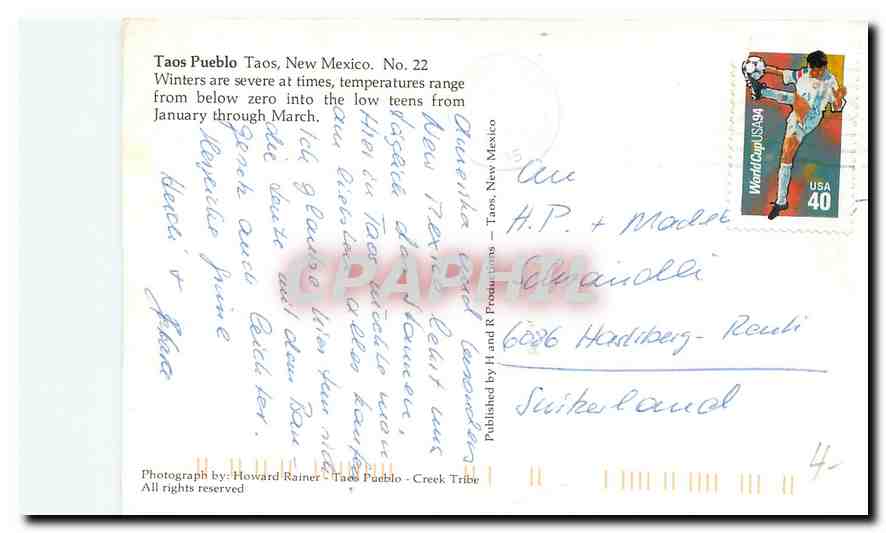 Taos Pueblo Taos, New Mexico. No. 22
Winters are severe at times, temperatures range
from below zero into the low teens from
January through March.
Amerika und besonders
New Mexico lehrt uns
täglich das Staunen,
Hier in Taos möchte man
am liebsten alles kaufen
Ich glaube hier tun sich
die Leute mit dem Bau-
gesetz auch leichter.
Herzliche Grüsse
Heidi +
Published by H and R Productions — Taos, New Mexico
An
H.P. + Madel
Schaidli
6086 Hasliberg-Reuti
Suitzerland
WorldCupUSA94
USA
40
CPAPHIL
Photograph by: Howard Rainer - Taos Pueblo - Creek Tribe
All rights reserved
4.-